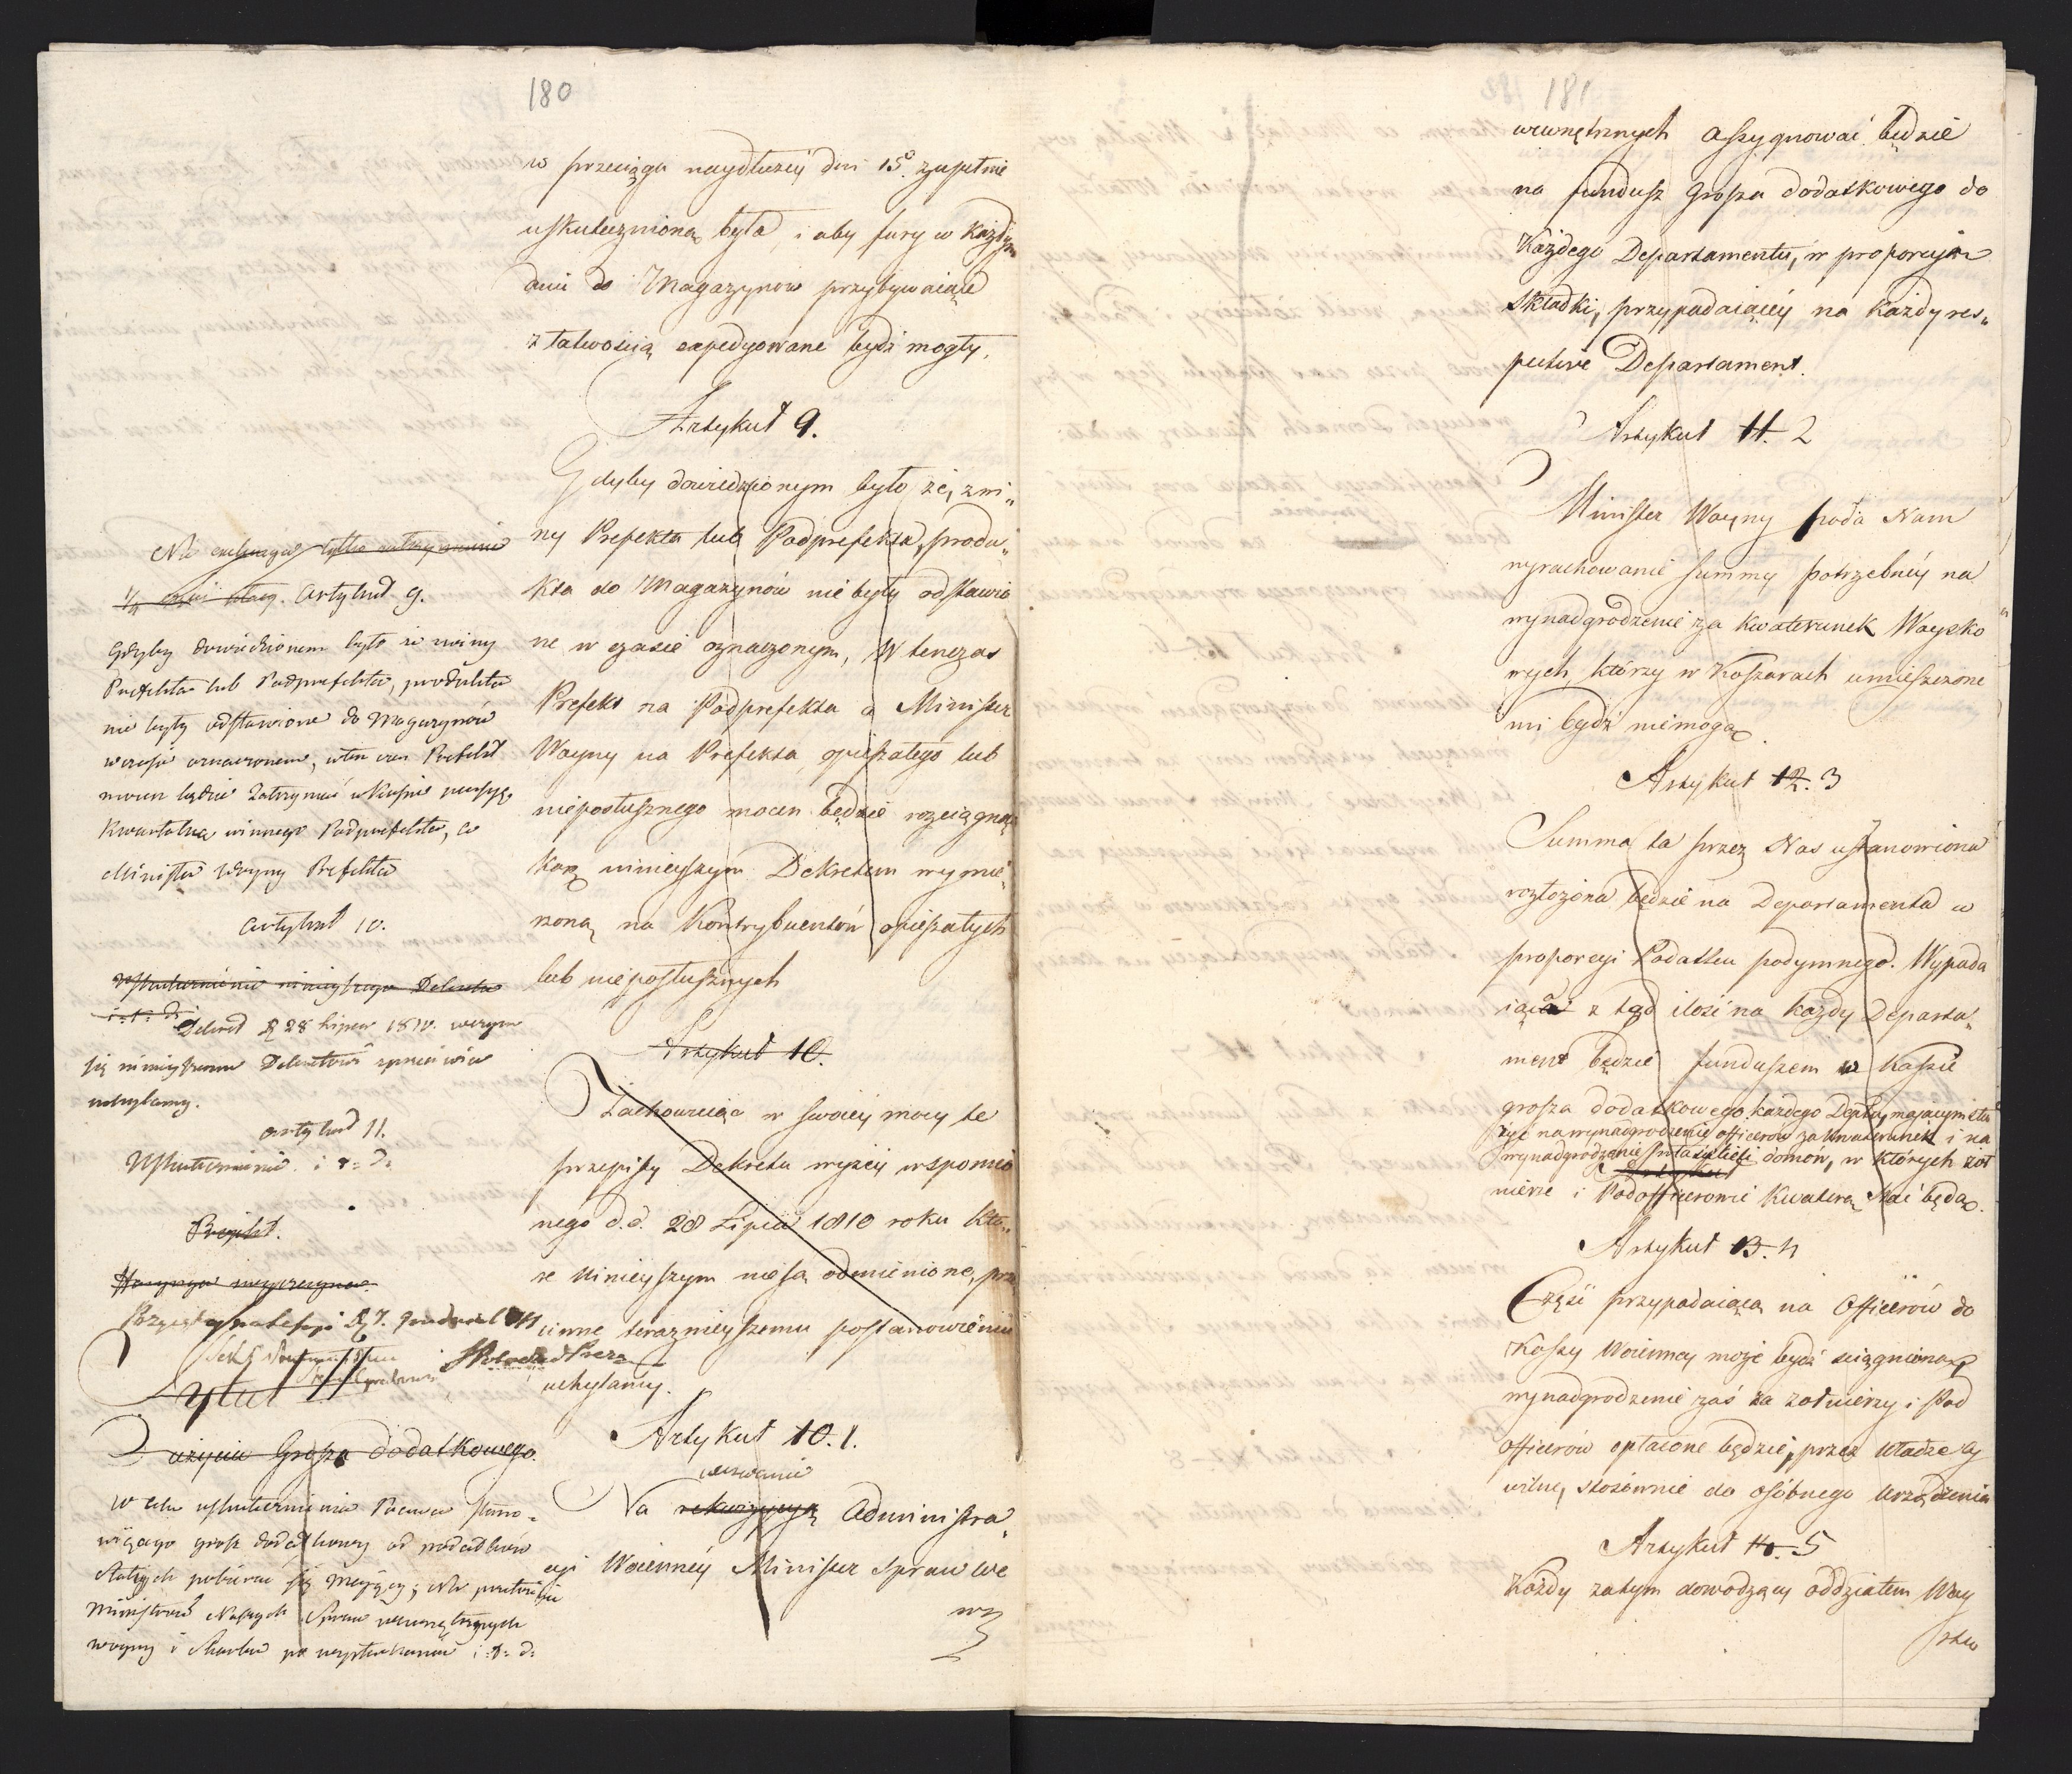 180
w przeciągu naydłużey dni 15. zupełnie
uskutecznioną była, i aby fury w każdym
dniu do Magazynów przybywaiące
z łatwością expedyowane bydź mogły.
Artykuł 9.
Gdyby dowiedzionym było, że, z wi„
ny Prefekta lub Podprefekta, produ„
kta do Magazynów nie były odstawio
ne w czasie oznaczonym, W tenczas
Prefekt na Podprefekta a Minister
Woyny na Prefekta, opieszałego lub
nieposłusznego mocen będzie rozciągnąć
karę ninieyszym Dekretem wymie„
nioną na Kontrybuentów opieszałych
lub nieposłusznych
Artykuł 10.
Zachowuiąc w swoiey mocy te
przepisy Dekretu wyżey wspomnio
nego d.d. 28 Lipca 1810 roku któ„
re ninieyszym nie są odmienione, prze
ciwne teraznieyszemu postanowieniu
uchylamy.
Artykuł 10. 1.
wezwanie
Na rekwizycyą Administra„
cyi Woienney Minister Spraw we
wn
artykuł 9.
Gdyby dowiedzionem było że z winy
Prefekta lub Podprefekta, produkta
nie były odstawione do Magazynów
w czasie oznaczonem, w ten czas Prefekt
mocen będzie zatrzymać w Kassie pensyę
kwartalną winnego Podprefekta, a
Minister Woyny Prefekta
artykuł 10.
Uskutecznienie ninieyszego Dekretu
i: t: d:
Dekret d. 28 Lipca 1810. w czym
się ninieyszemu Dekretowi sprzeciwia
uchylamy.
artykuł 11.
Uskutecznienie i: t: d:
Proiekt.
Przyięty na Sessyi d. 7. Grudnia 1811
Tytuł III
O użyciu Grosza dodatkowego.
W celu uskutecznienia Prawa stano„
wiącego grosz dodatkowy od podatków
stałych pobierać się maiący; Na przełożenie
Ministrów Naszych Spraw wewnętrznych
woyny i Skarbu po wysłuchaniu i: t: d:
182 181
wewnętrznych assygnować będzie
na fundusz Grosza dodatkowego do
każdego Departamentu, w proporcyi
składki, przypadaiącey na każdy res„
pective Departament.
Artykuł 11. 2
Minister Woyny poda Nam
wyrachowanie summy potrzebney na
wynadgrodzenie za kwaterunek Woysko
wych, którzy w Koszarach umieszczone
mi bydź niemogą.
Artykuł 12. 3
Summa ta przez Nas ustanowiona
rozłożona będzie na Departamenta w
proporcyi Podatku podymnego. Wypada
iąca z tąd ilość na każdy Departa„
ment będzie funduszem w Kassie
grosza dodatkowego każdego Deptu, maiącym słu
żyć na wynadgrodzenie officerów za kwaterunek i na
wynadgrodzenie właścicieli domów, w których żoł
Artykuł
nierze i Podofficerowie kwaterą stać będą.
Artykuł 13. 4
Część przypadaiąca na Officerów do
Kassy Woienney może bydź ściągnioną,
wynadgrodzenie zaś za żołnierzy i Pod
officerów opłacone będzie, przez władze cy
wilne, stosownie do osóbnego urządzenia
Artykuł 14. 5
Każdy zatym dowodzący oddziałem Woy
ska